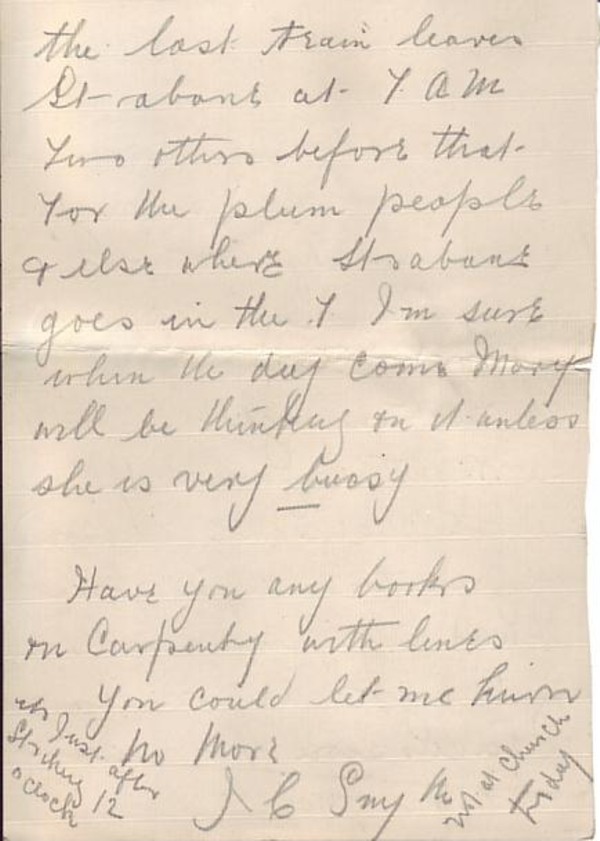 the last train leaves
Strabane at 7 AM
Two others before that
For the plum people
& else where Strabane
goes in the 7 I'm sure
when the day come Mary
will be thinking on it unless
she is very buosy
Have you any books
on Carpenty with lines
You could let me know
No More
J C Smyth
its Just after
Striking 12
o clock
not at Church
today